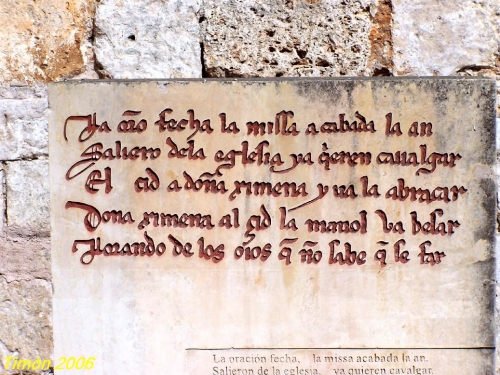 La orō fecha la missa acabada la an
Saliero dela eglesia ya q̃eren caualgar
El çid a doña ximena yua la abraçar
Doña ximena al çid la manol va besar
Llorando de los oios q̃ ño sabe q̃ se far
La oración fecha, la missa acabada la an.
Salieron de la eglesia, ya quieren cavalgar.
Timon 2006